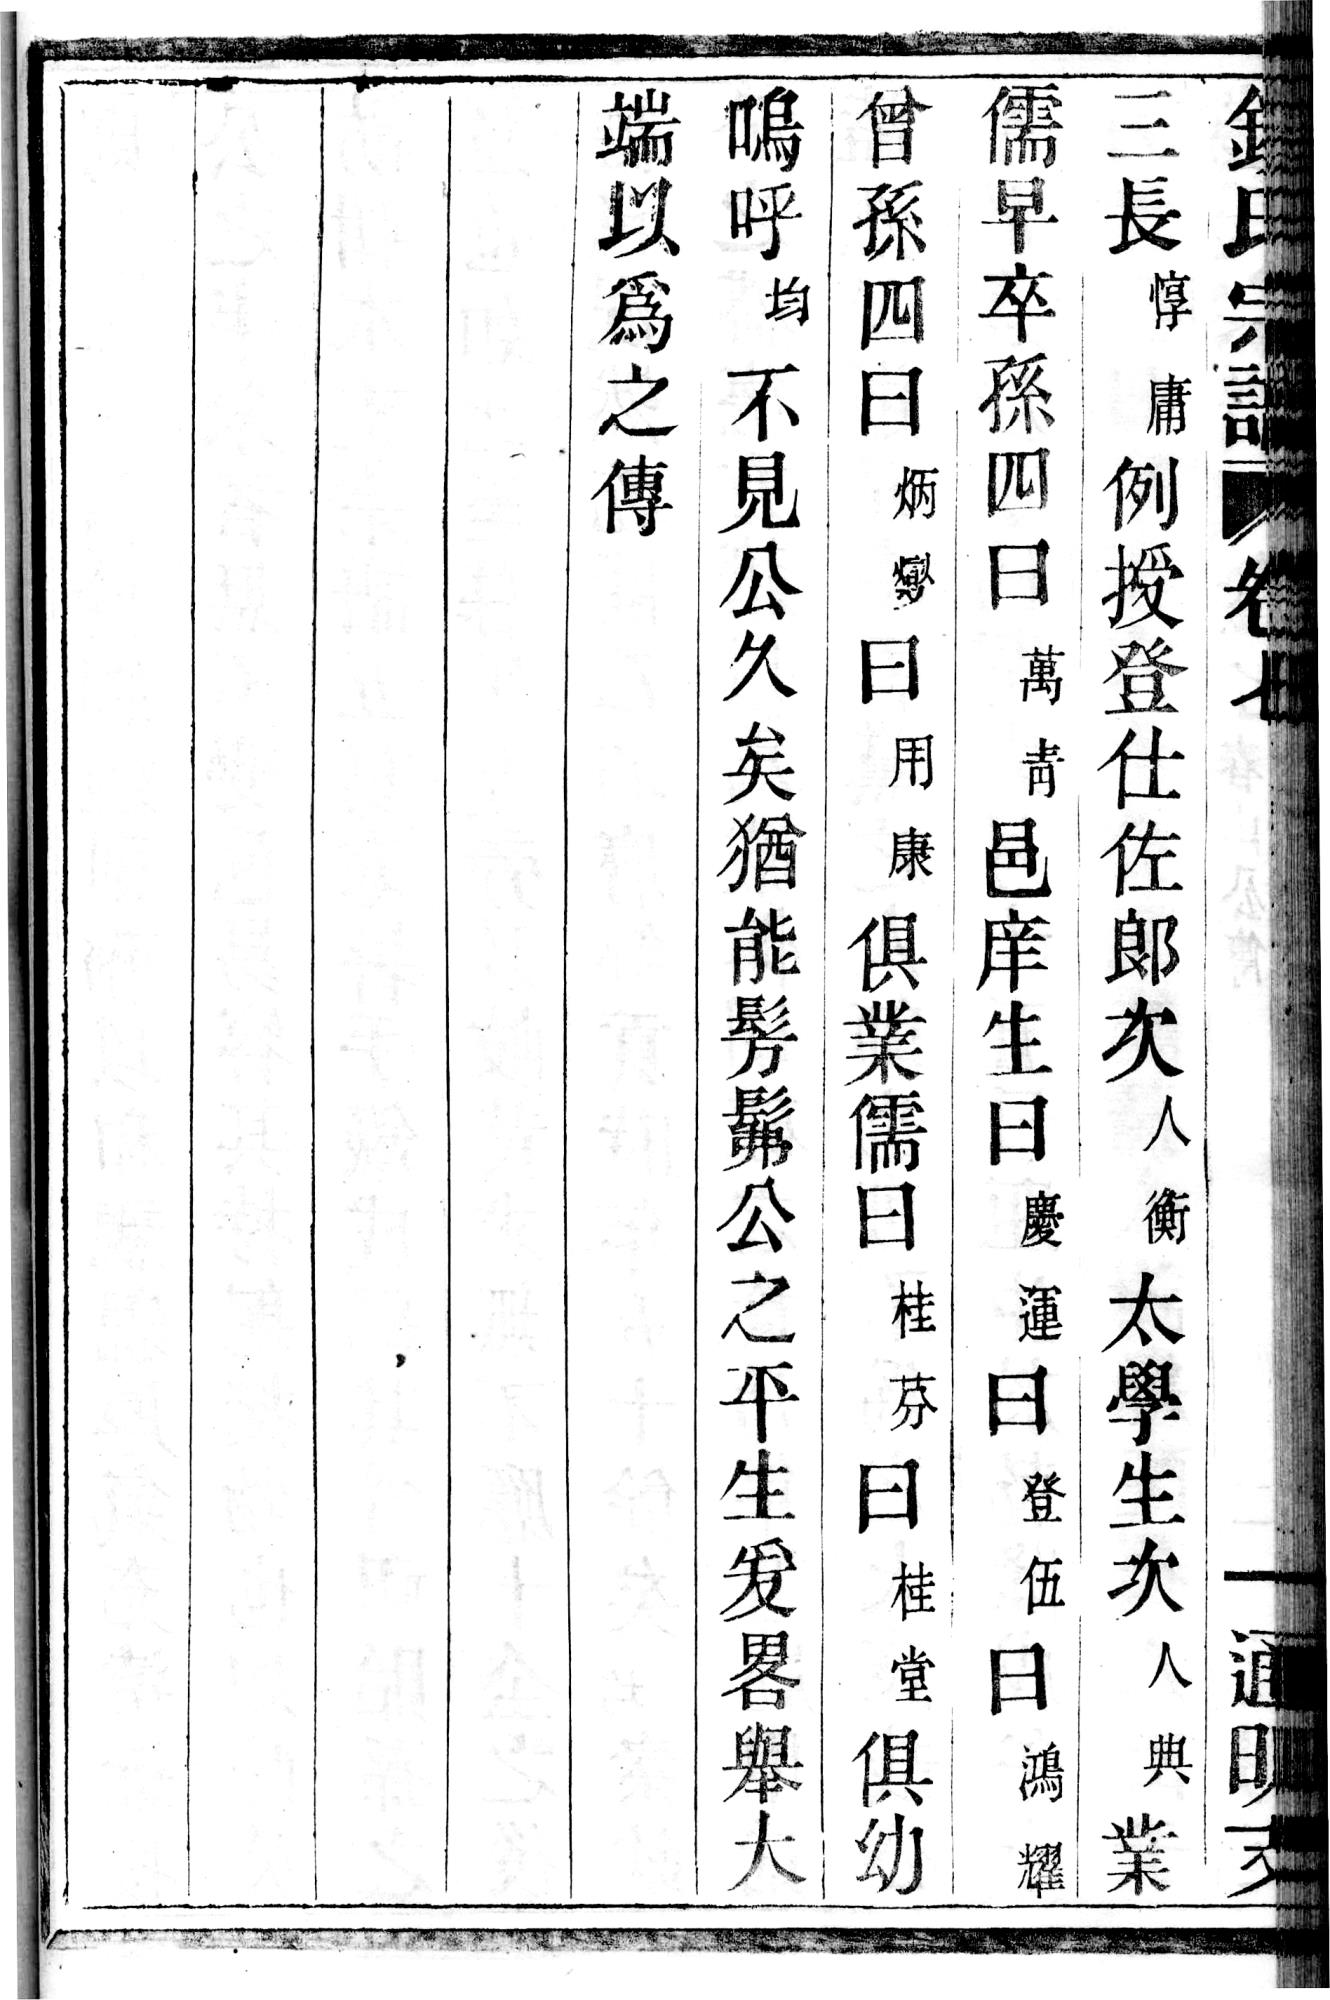 氏宗譜 卷七 一 通明支
三長惇庸例授登仕佐郎次人衡太學生次人典業
儒早卒孫四曰萬靑邑庠生曰慶運曰登伍曰鴻耀
曾孫四曰炳變曰用康俱業儒曰桂芬曰桂堂俱幼
嗚呼均不見公久矣猶能髣髴公之平生爰畧舉大
端以爲之傳